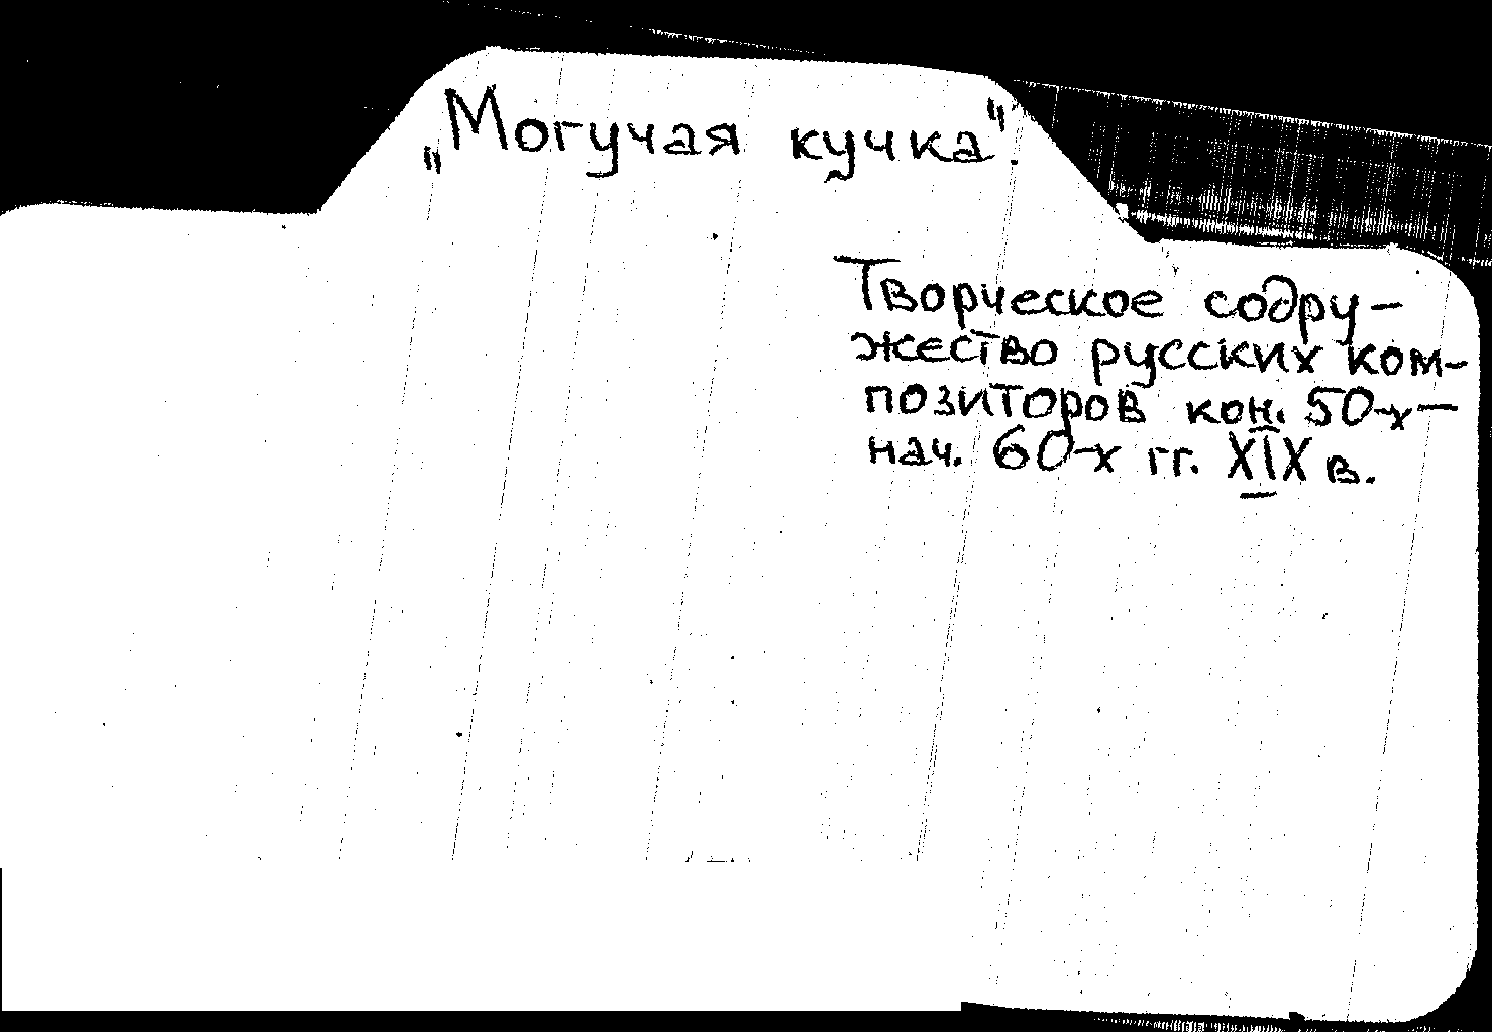 „Могучая кучка".
Творческое содру-
жество русских ком-
позиторов кон. 50-х-
нач. 60-х гг. XIX в.